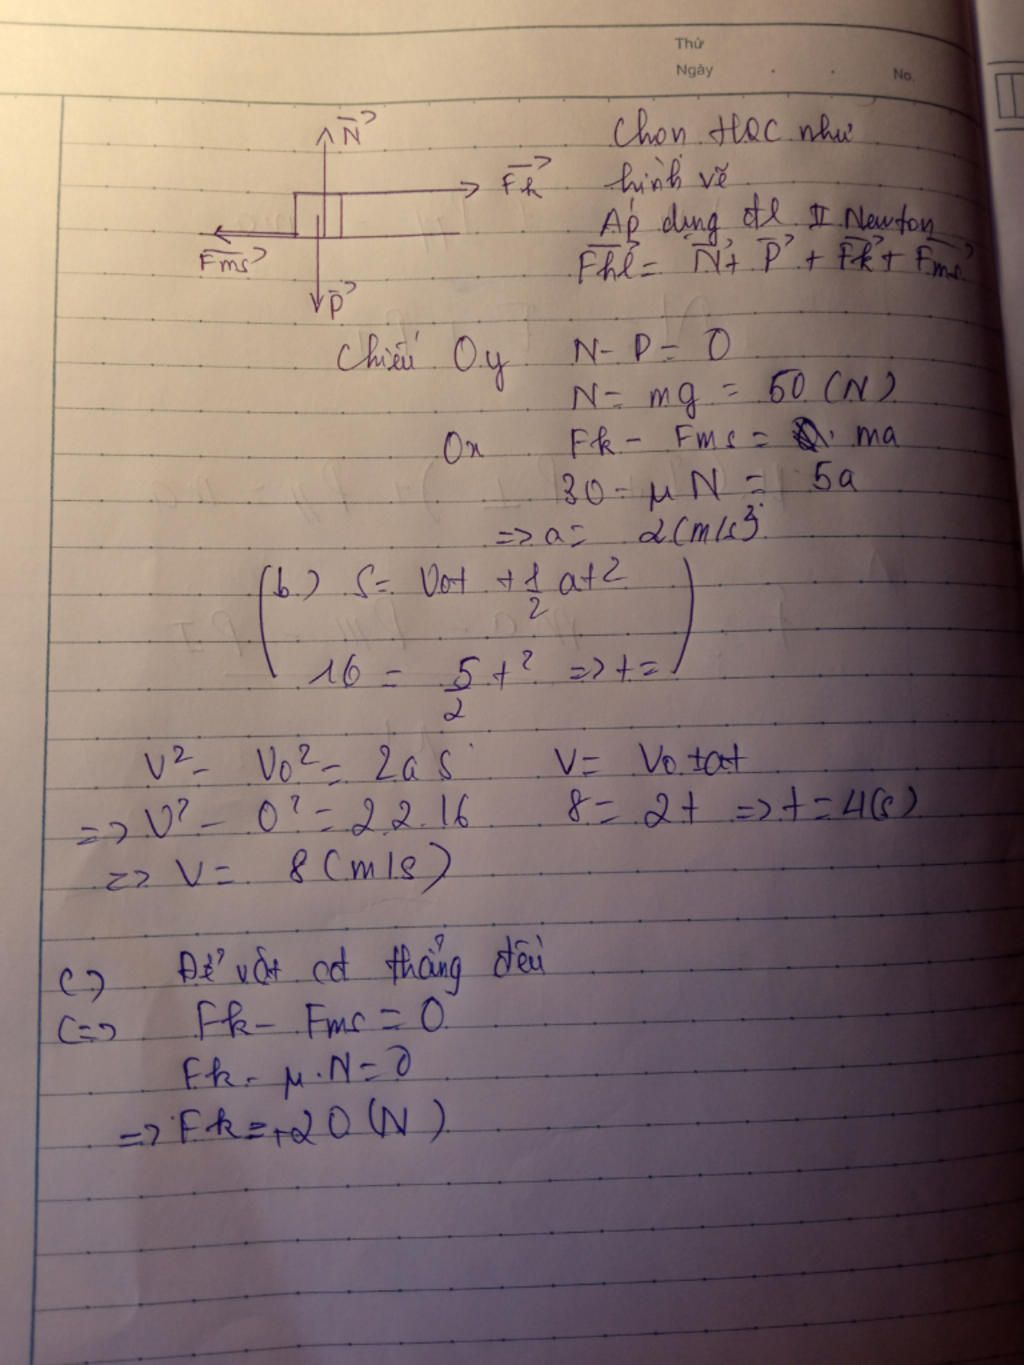 Thứ
Ngày
No.
N
Fk
Fms
P
Chọn HQC như
hình vẽ
Áp dụng đl II Newton
Fhl = N + P + Fk + Fms
Chiếu Oy N - P = 0
N = mg = 50 (N)
Ox Fk - Fms = ma
30 - μN = 5a
=> a = 2 (m/s²)
(b.) S = Vot + 1/2 at2
16 = 5/2 t² => t = )
V² - Vo² = 2as V = Vo + at
=> V² - 0² = 2.2.16 8 = 2t => t = 4(s)
=> V = 8 (m/s)
c) Để vật cđ thẳng đều
<=> Fk - Fms = 0
Fk - μ.N = 0
=> Fk = +20 (N)